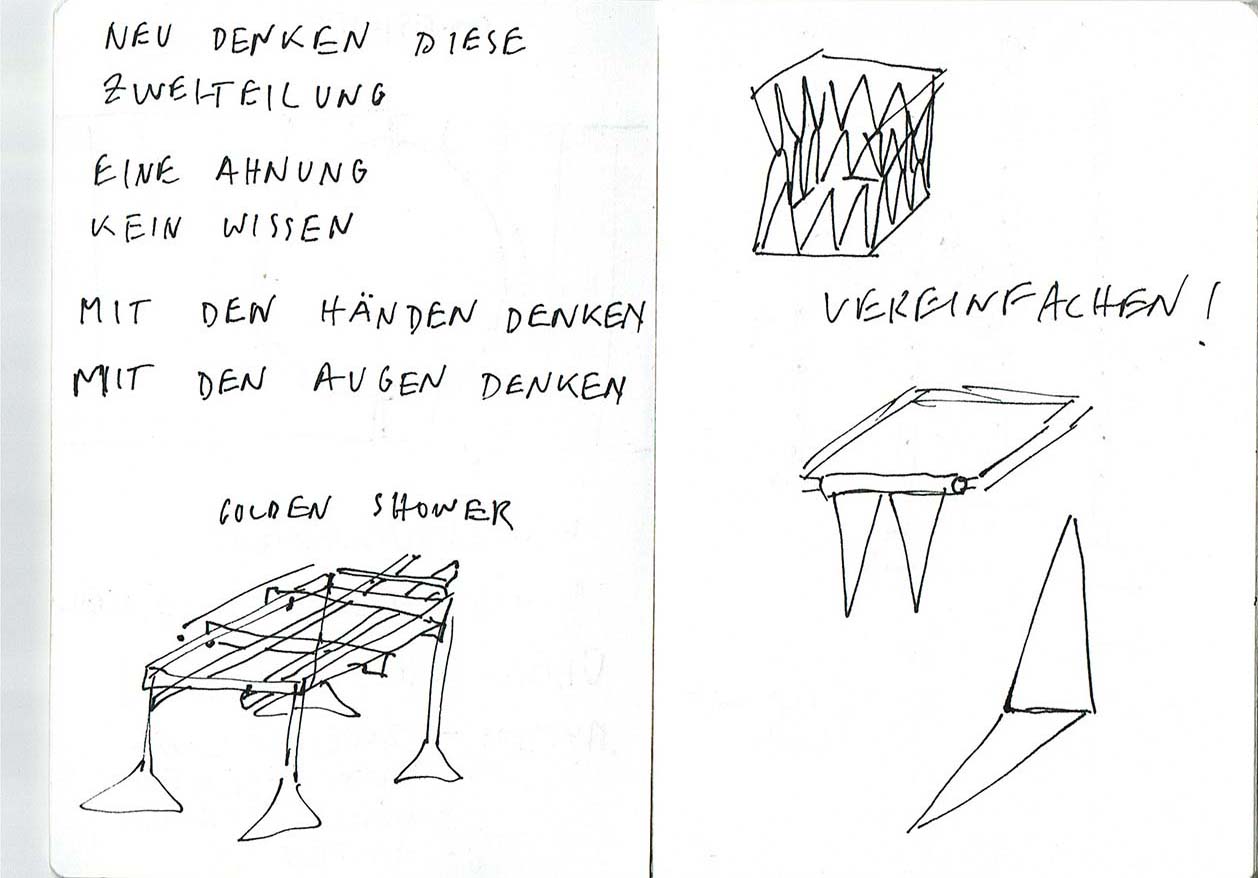 NEU DENKEN DIESE
ZWEITEILUNG
EINE AHNUNG
KEIN WISSEN
MIT DEN HÄNDEN DENKEN
MIT DEN AUGEN DENKEN
GOLDEN SHOWER
VEREINFACHEN!